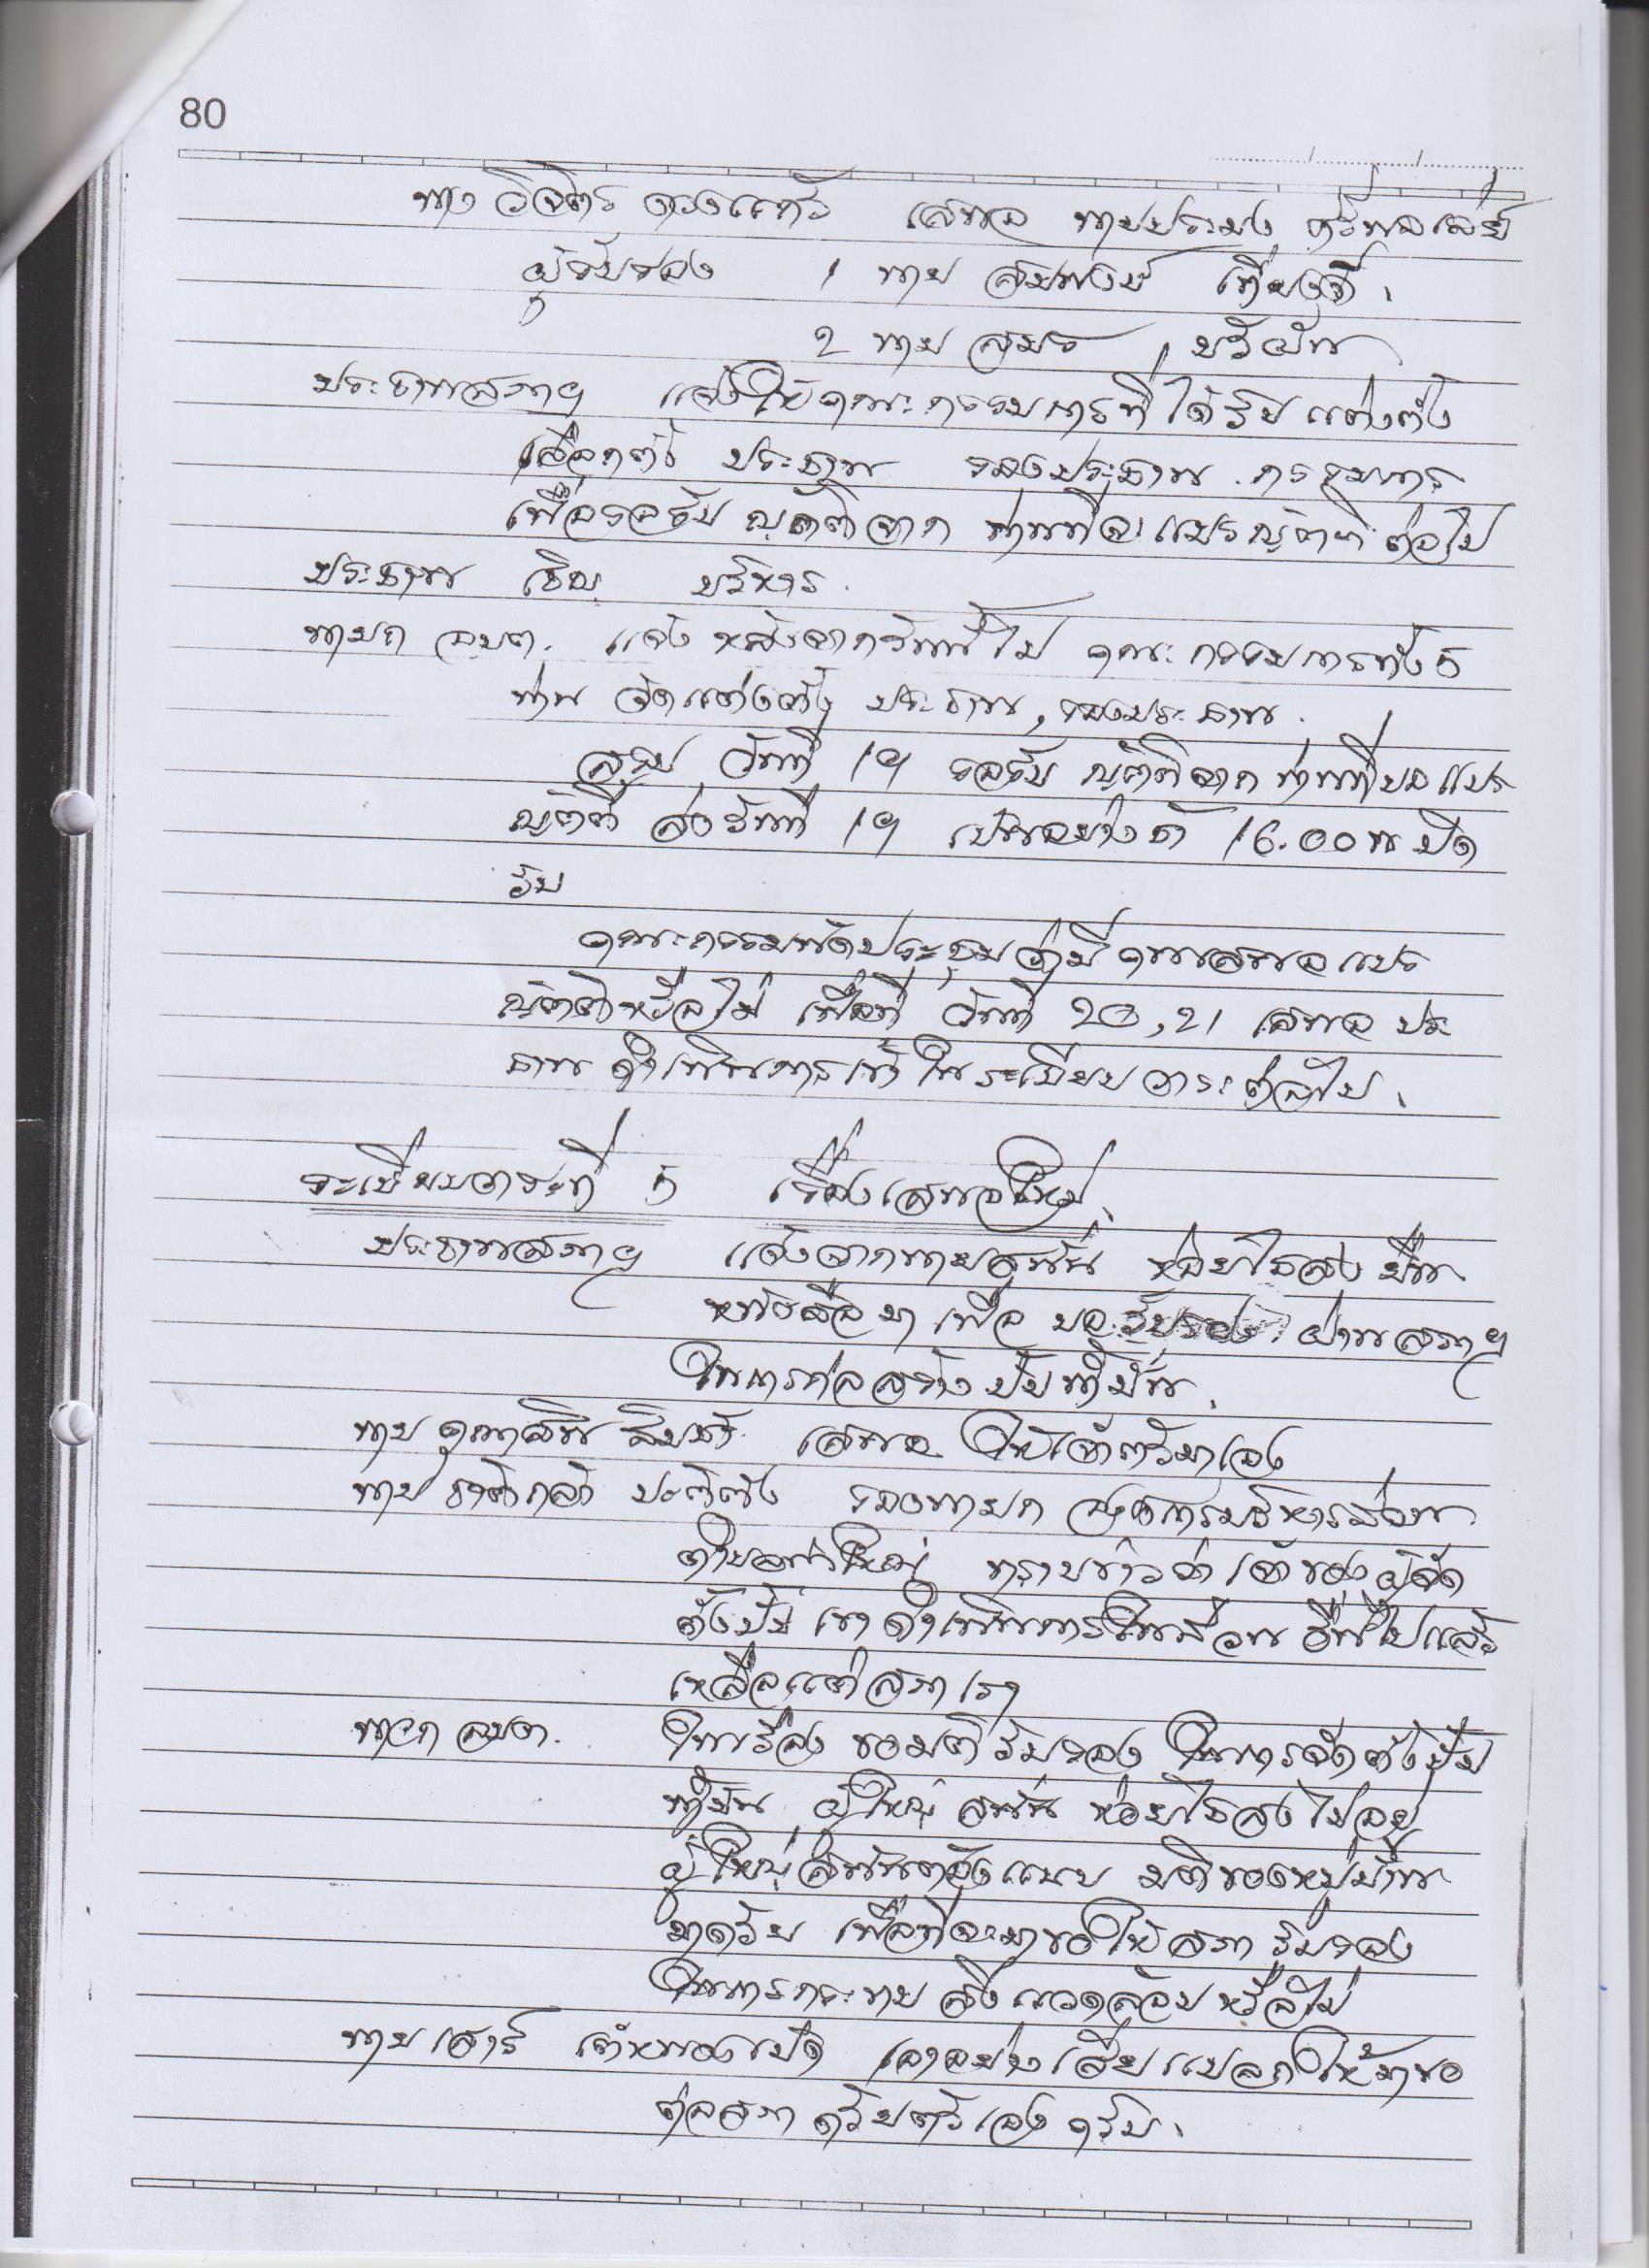 80
นาง วิจิตร ดวงแก้ว เสนอ นายประมง ศรีพลเมือง
ผู้รับรอง 1 นาย สมพงษ์
2 นาย สมร
ประธานสภาฯ แจ้งให้คณะกรรมการที่ได้รับแต่งตั้ง
เลือกตั้ง ประธาน รองประธาน กรรมการ
เพื่อรอรับ ญัตติจาก ท่านที่จะแปรญัตติ ต่อไป
ประธาน เชิญ บริหาร
นายก อบต. แจ้ง หลังจากวันนี้ไป คณะกรรมการทั้ง 5
ท่าน จัดแต่งตั้ง ประธาน, รองประธาน
สรุป วันที่ 19 รอรับ ญัตติจาก ท่านที่ขอแปร
ญัตติ ส่งวันที่ 19 เป็นอย่างช้า 16.00 น ปิด
รับ
คณะกรรมนัดประชุมว่ามีคนเสนอแปร
ญัตติหรือไม่ เพื่อที่ วันที่ 20, 21 เสนอ ประ
ธาน ดำเนินการเข้าในระเบียบวาระต่อไป
ระเบียบวาระที่ 5 เรื่องเสนอใหม่
ประธานสภาฯ แจ้งจากนายสนั่น ห่อยไธสง ยื่น
หนังสือมา เพื่อ ขอรับรอง ผ่านสภาฯ
ในการก่อสร้าง ปั๊มน้ำมัน
นาย คุณาสิน เสนอ ให้เจ้าตัวมาเอง
นาย ชาติกล้า ปะกิตัง รองนายก องค์การบริหารส่วน
ตำบล ทราบข่าวว่า เจ้าของผู้จัด
ตั้งปั๊ม เขาดำเนินการในส่วน อื่นไปแล้ว
เหลือแต่สภาเรา
นายก อบต. ในเรื่อง ขอมติรับรอง ในการจัดตั้งปั๊ม
น้ำมัน ผู้ใหญ่ สนั่น ห่อยไธสง ไม่อยู่
ผู้ใหญ่สนั่นต้องแนบ มติของหมู่บ้าน
มาด้วย เพื่อที่จะมาขอให้สภา รับรอง
ในการกระทบ สิ่งแวดล้อม หรือไม่
นายเสาร์ เอาอย่างเสี่ยแปลกให้มาขอ
ต่อสภา ด้วยตัวเอง ครับ